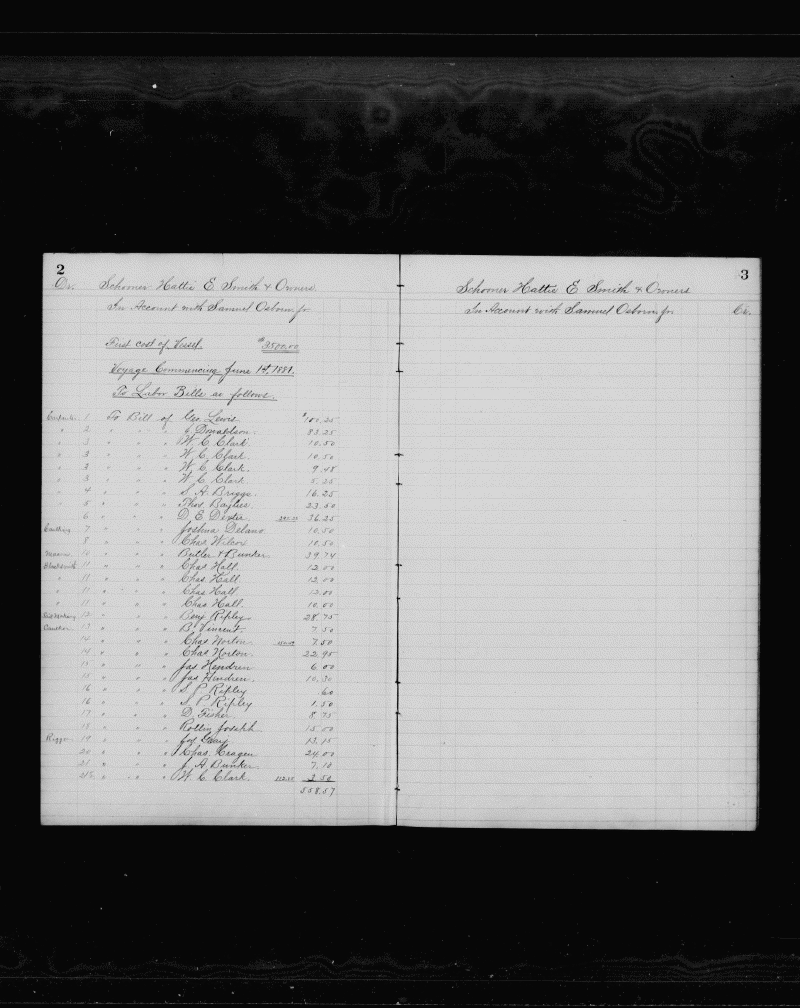 2
Dr. Schooner Hattie E. Smith & Owners.
In Account with Samuel Osborn, Jr.
First cost of Vessel. $3500.00
Voyage Commencing June 1st, 1881.
To Labor Bills as follows.
Carpenter 1 To Bill of Geo. Lewis $100.25
" 2 " " " J. Donaldson 83.25
" 3 " " " W. C. Clark 10.50
" 3 " " " W. C. Clark. 10.50
" 3 " " " W. C. Clark. 9.48
" 3 " " " W. C. Clark 5.25
" 4 " " " S. A. Briggs. 16.25
" 5 " " " Thos. Baylies 23.50
6 " " " D. E. Dexter. 36.25
Caulking 7 " " " Joshua Delano 10.50
8 " " " Chas Wilcox 10.50
10 " " " Butler & Bunker. 39.74
Blacksmith 11 " " " Chas Hall. 12.00
" 11 " " " Chas. Hall. 12.00
" 11 " " " Chas Hall. 12.00
" 11 " " " Chas Hall. 10.00
Sail Making 12 " " " Benj Ripley 28.75
13 " " " B. Vincent. 7.50
14 " " " Chas Norton. 7.50
14 " " " Chas Norton. 22.95
15 " " " Jas Hendren 6.00
15 " " " Jas Hindren. 10.30
16 " " " S. P. Ripley .60
16 " " " S. P. Ripley 1.50
17 " " " D. Fisher. 8.75
18 " " " Rollin Joseph. 15.00
19 " " " 13.15
20 " " " Chas. 24.00
21 " " " J. A. Bunker. 7.10
" " " W. C. Clark. 3.50
558.57
3
Schooner Hattie E Smith & Owners
In Account with Samuel Osborn, Jr. Cr.